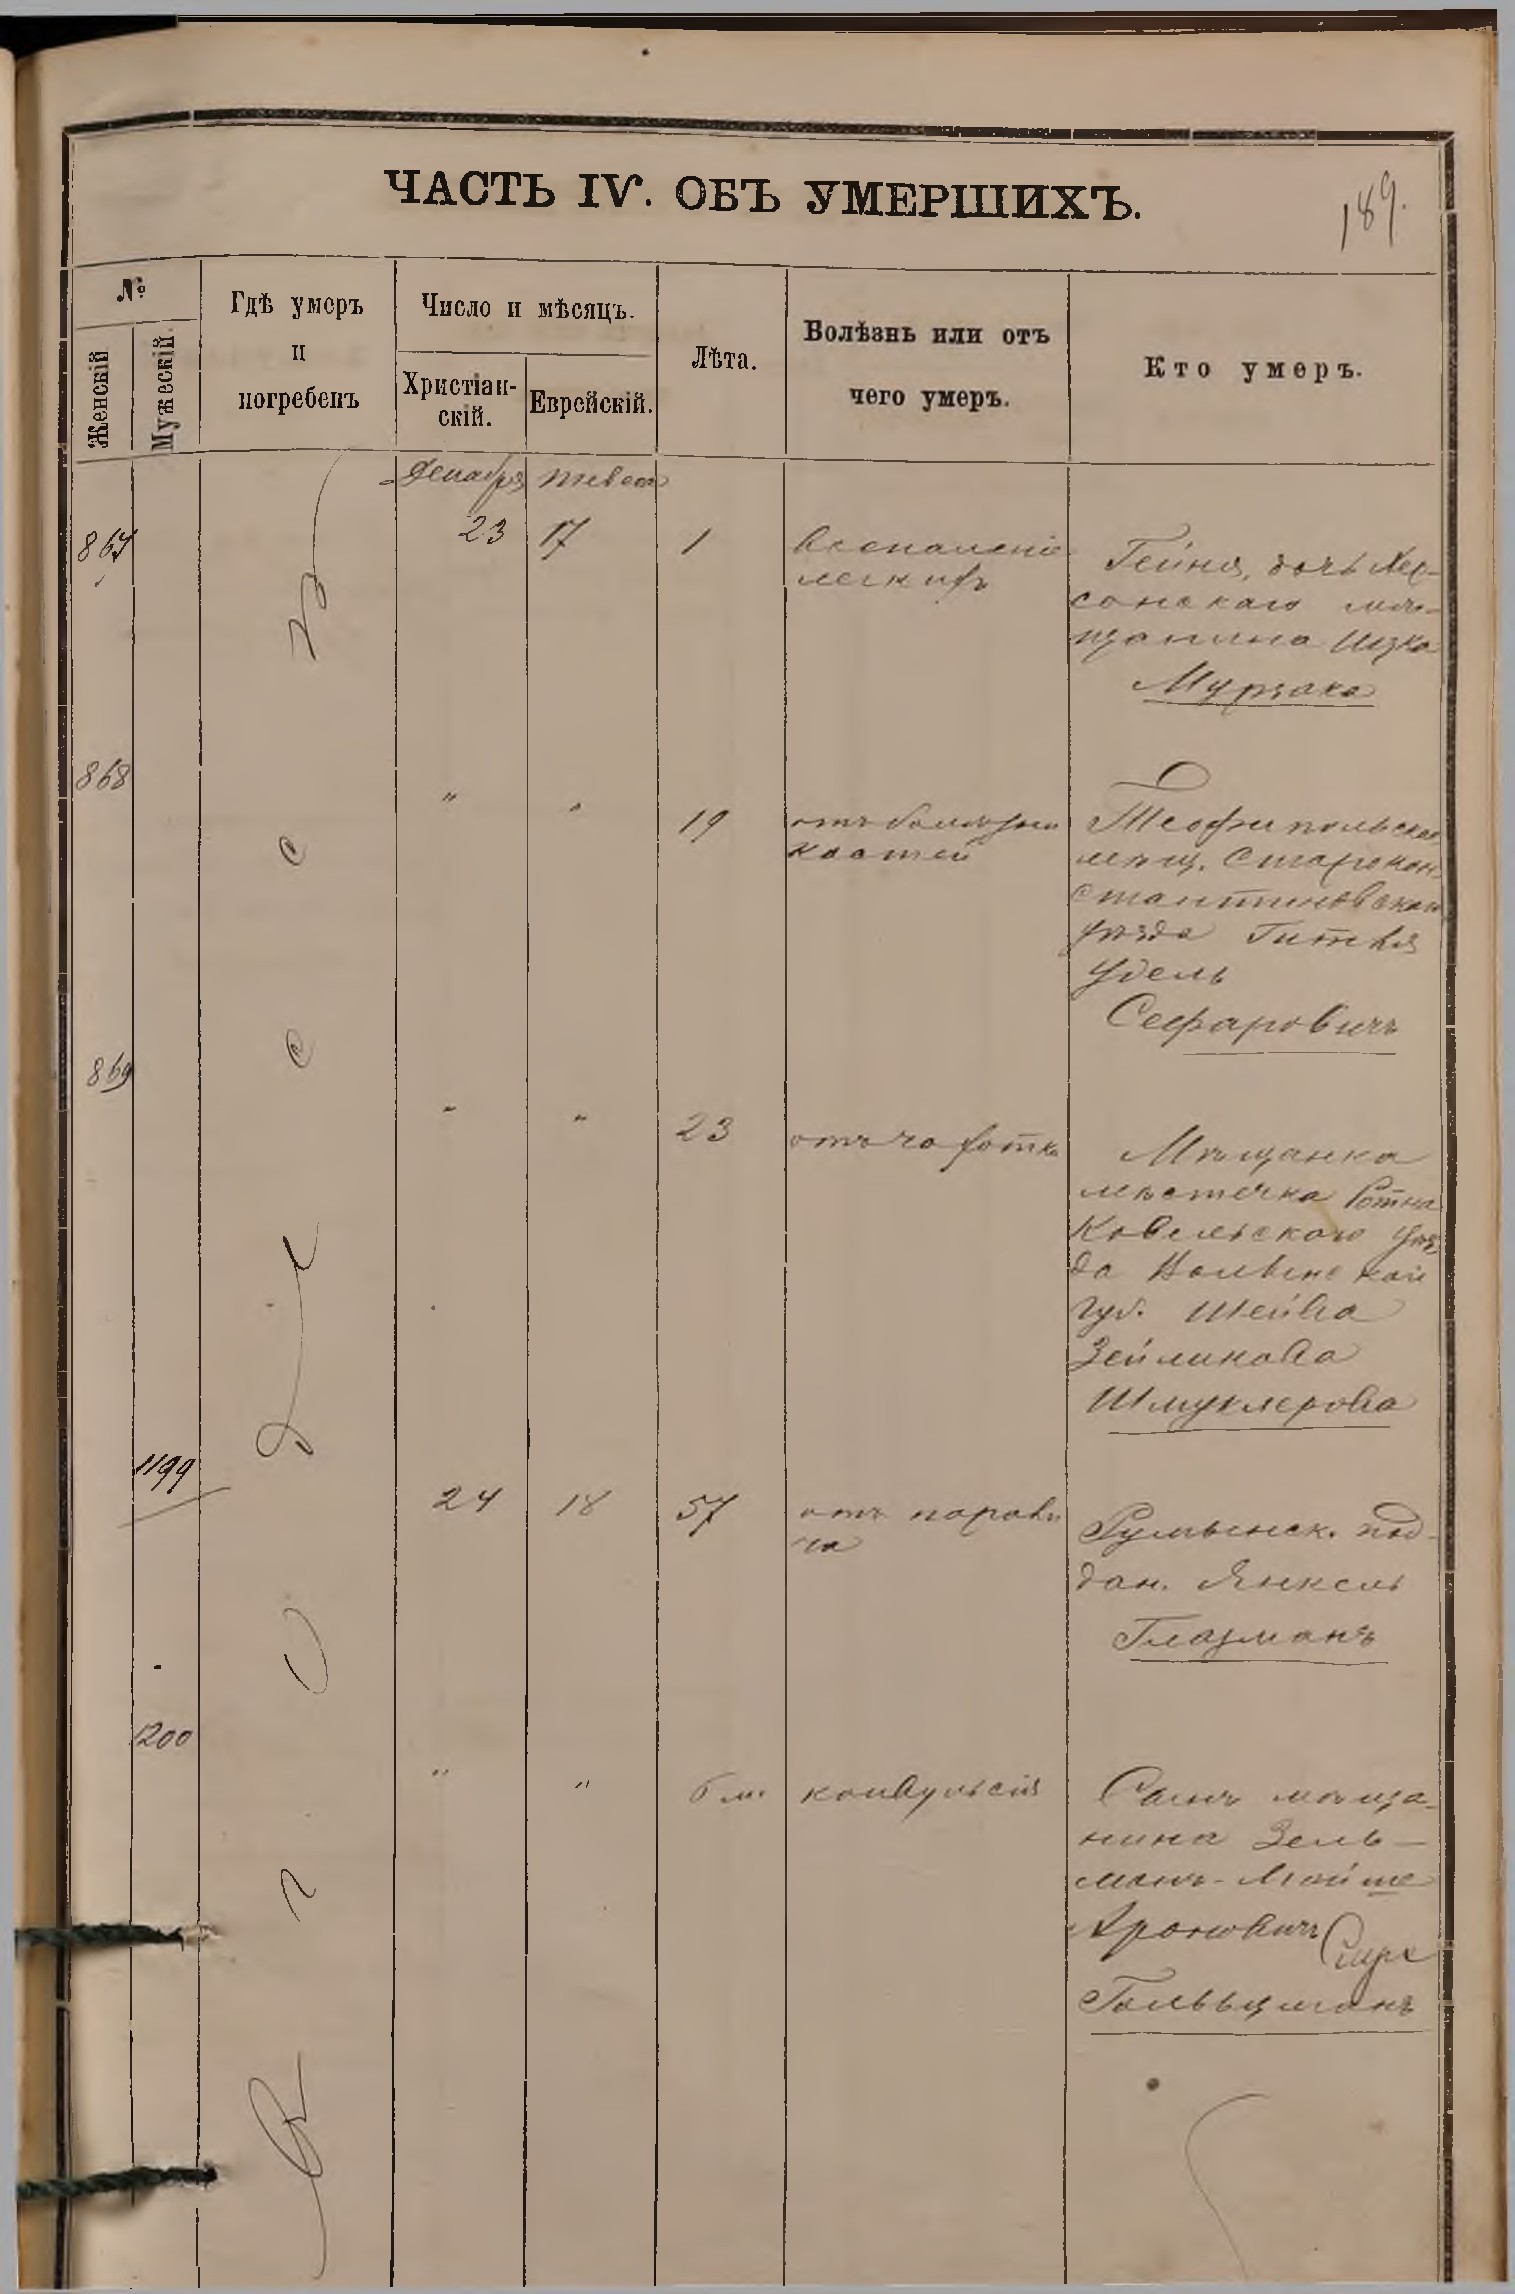 ЧАСТЬ IV. ОБЪ УМЕРШИХЪ.
189.
№
Женскій
Мужескій
Гдѣ умеръ
и
погребенъ
Число и мѣсяцъ.
Христіан-
скій.
Еврейскій.
Лѣта.
Болѣзнь или отъ
чего умеръ.
Кто умеръ.
Декабря
тевет
867
23
17
1
воспаленіе
легкихъ
Гейня, дочь Хер-
сонскаго мѣ-
щанина Ицка
Мурзака
868
"
"
19
отъ болѣзни
костей
Теофипольская
мѣщ. Старокон
стантиновскаго
уѣзда Гитля
Удель
Сефаровичъ
869
"
"
23
отъ чахотки
Мѣщанка
мѣстечка Ратна
Ковельскаго уѣз
да Волынской
губ. Шейва
Зейликова
Шмуклерова
1199
24
18
57
отъ
Румынск. под-
дан. Янкель
Глазманъ
1200
"
"
6 м.
конвульсія
Сынъ мѣща-
нина Зель-
манъ-Мойше
Ароновичъ
Гольцманъ
въ Одессѣ